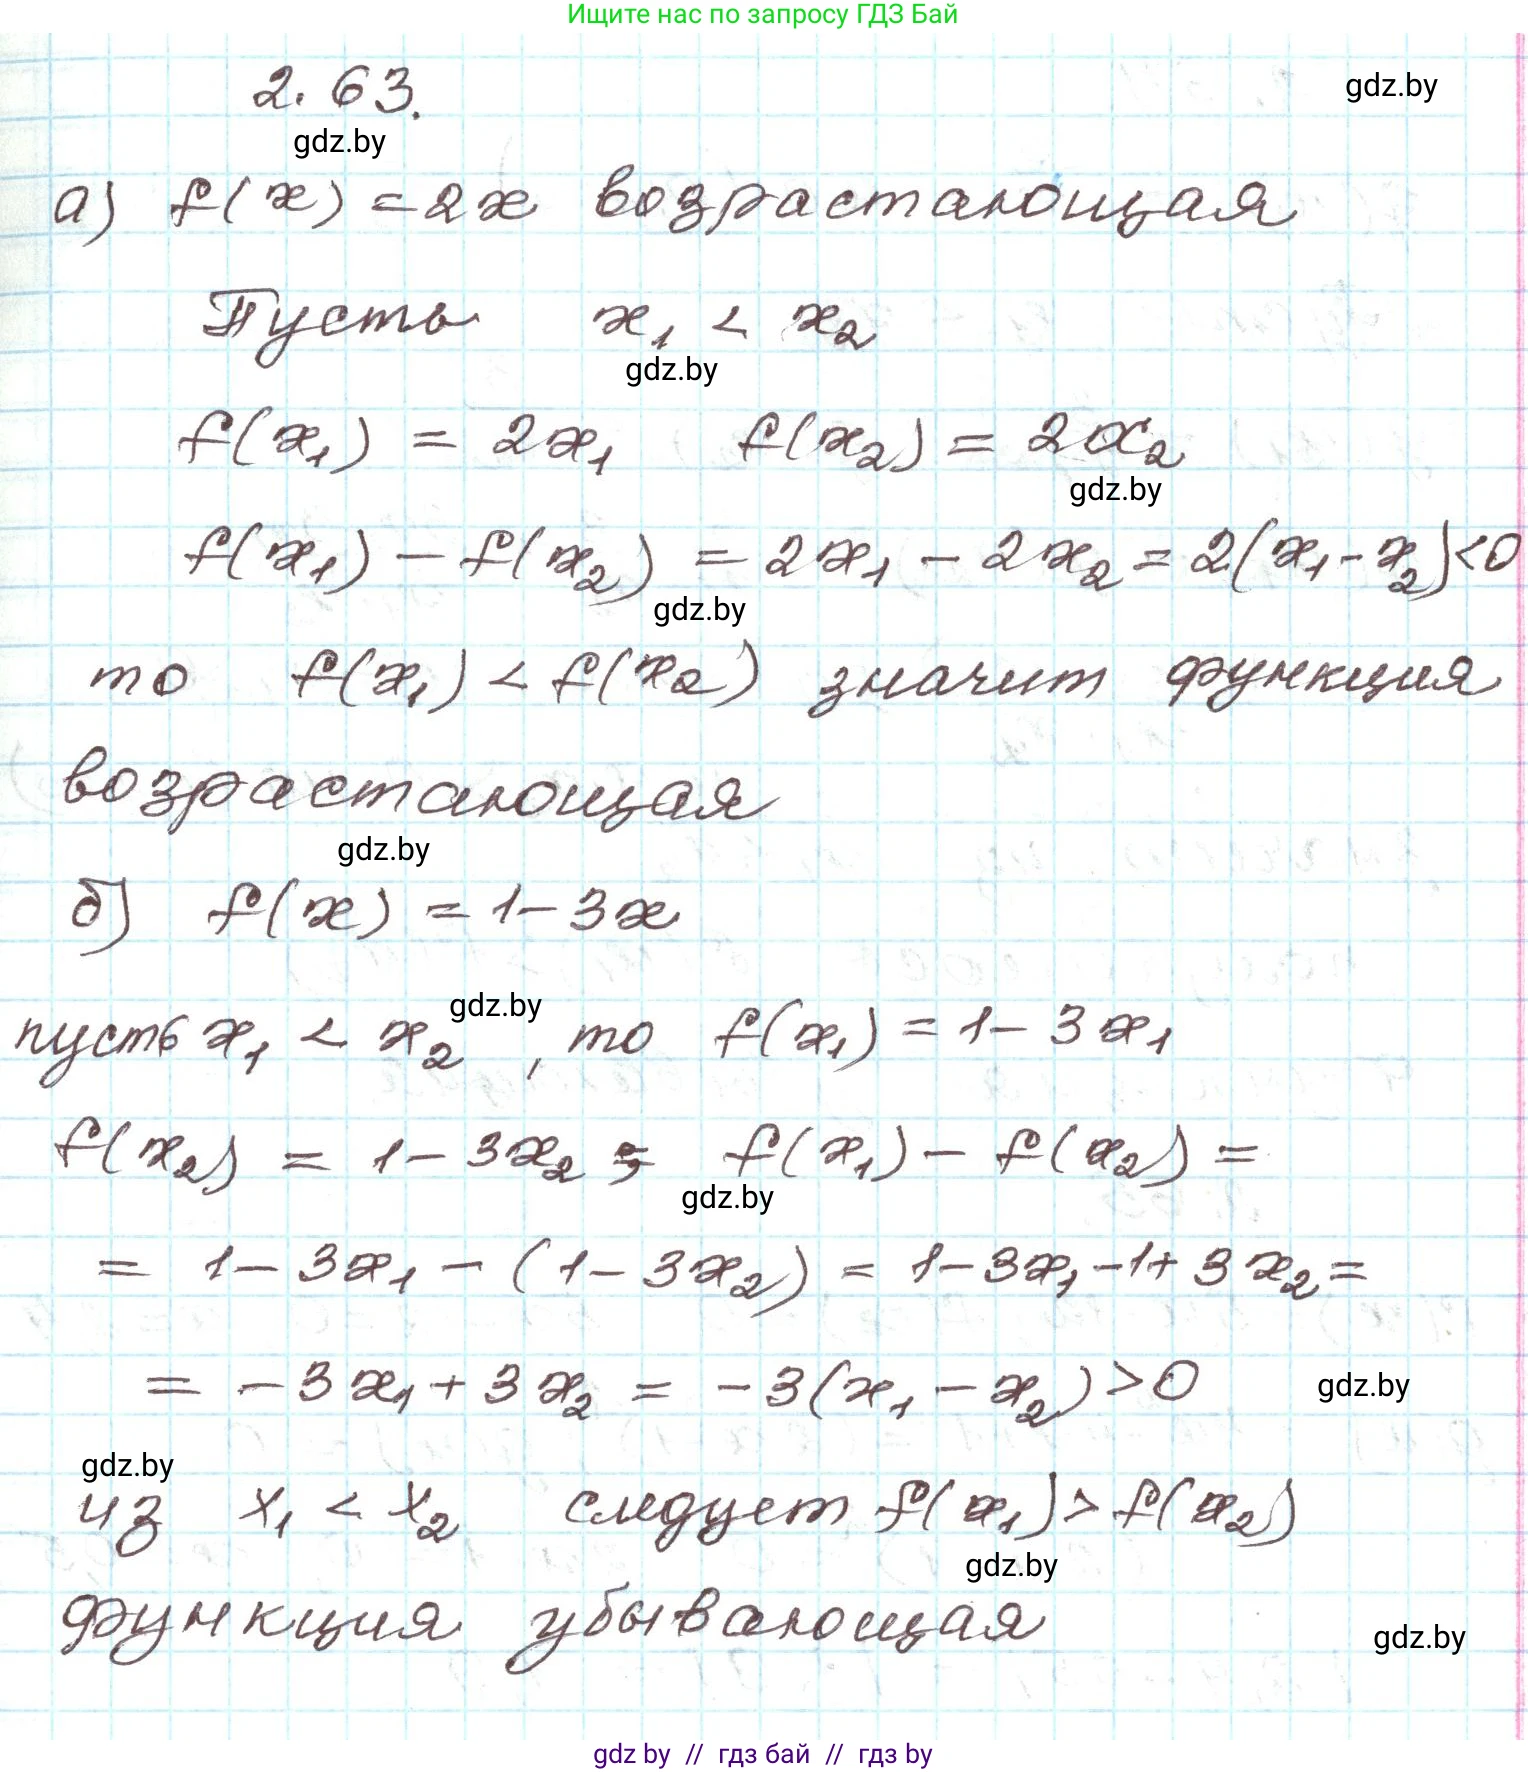 Ищите нас по запросу ГДЗ Бай
2.63.
gdz.by
gdz.by
а) f(x) = 2x возрастающая
Пусть x₁ < x₂
gdz.by
f(x₁) = 2x₁ f(x₂) = 2x₂
gdz.by
f(x₁) - f(x₂) = 2x₁ - 2x₂ = 2(x₁ - x₂) < 0
gdz.by
то f(x₁) < f(x₂) значит функция
возрастающая
gdz.by
б) f(x) = 1 - 3x
gdz.by
пусть x₁ < x₂, то f(x₁) = 1 - 3x₁
f(x₂) = 1 - 3x₂ ; f(x₁) - f(x₂) =
gdz.by
= 1 - 3x₁ - (1 - 3x₂) = 1 - 3x₁ - 1 + 3x₂ =
= - 3x₁ + 3x₂ = - 3(x₁ - x₂) > 0
gdz.by
gdz.by
из x₁ < x₂ следует f(x₁) > f(x₂)
gdz.by
функция убывающая
gdz.by
gdz by // гдз бай // гдз by